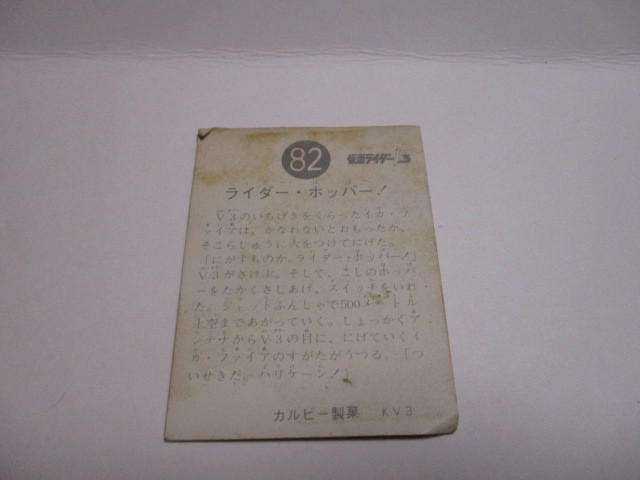 82
仮面ライダーV3
ライダー・ホッパー!
V3のいちげきをくらったイカ・フ
ァイアは、かなわないとおもったか、
そこらじゅうに火をつけてにげた。
「にがすものか。ライダー・ホッパー!」
V3がさけぶ。そして、こしのホッパ
ーをたかくさしあげ、スイッチをいれ
た。ジェットふんしゃで500メートル
上空まであがっていく。しょっかくア
ンテナからV3の目に、にげていくイ
カ・ファイアのすがたがうつる。「つ
いせきだ。ハリケーン!」
カルビー製菓 KV3